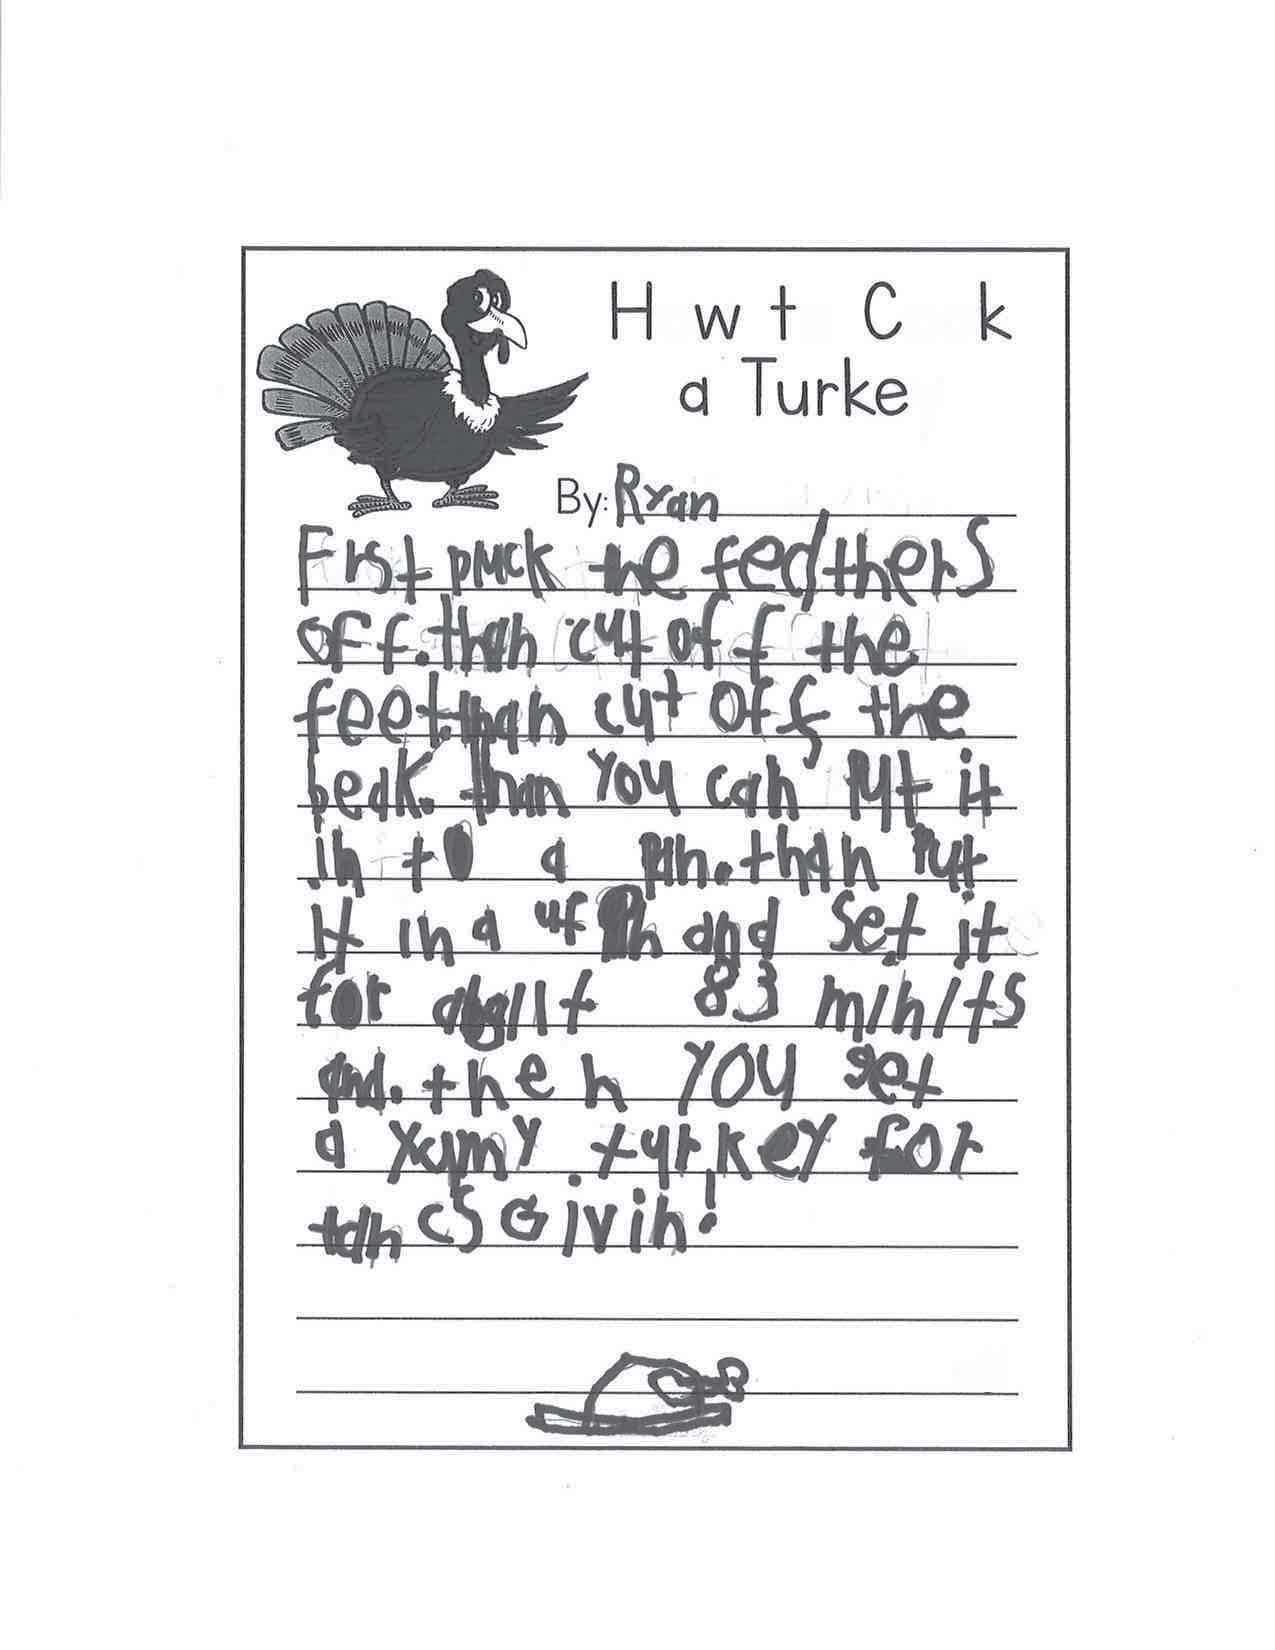 H w t C k
a Turke
By: Ryan
Frst pluck the fedthers
off. than cut off the
feet. than cut off the
beak. than you can put it
in to a pan. than put
it in a and set it
for abuit 83 minits
and. then you get
a yumy turkey for
tancsGivin!